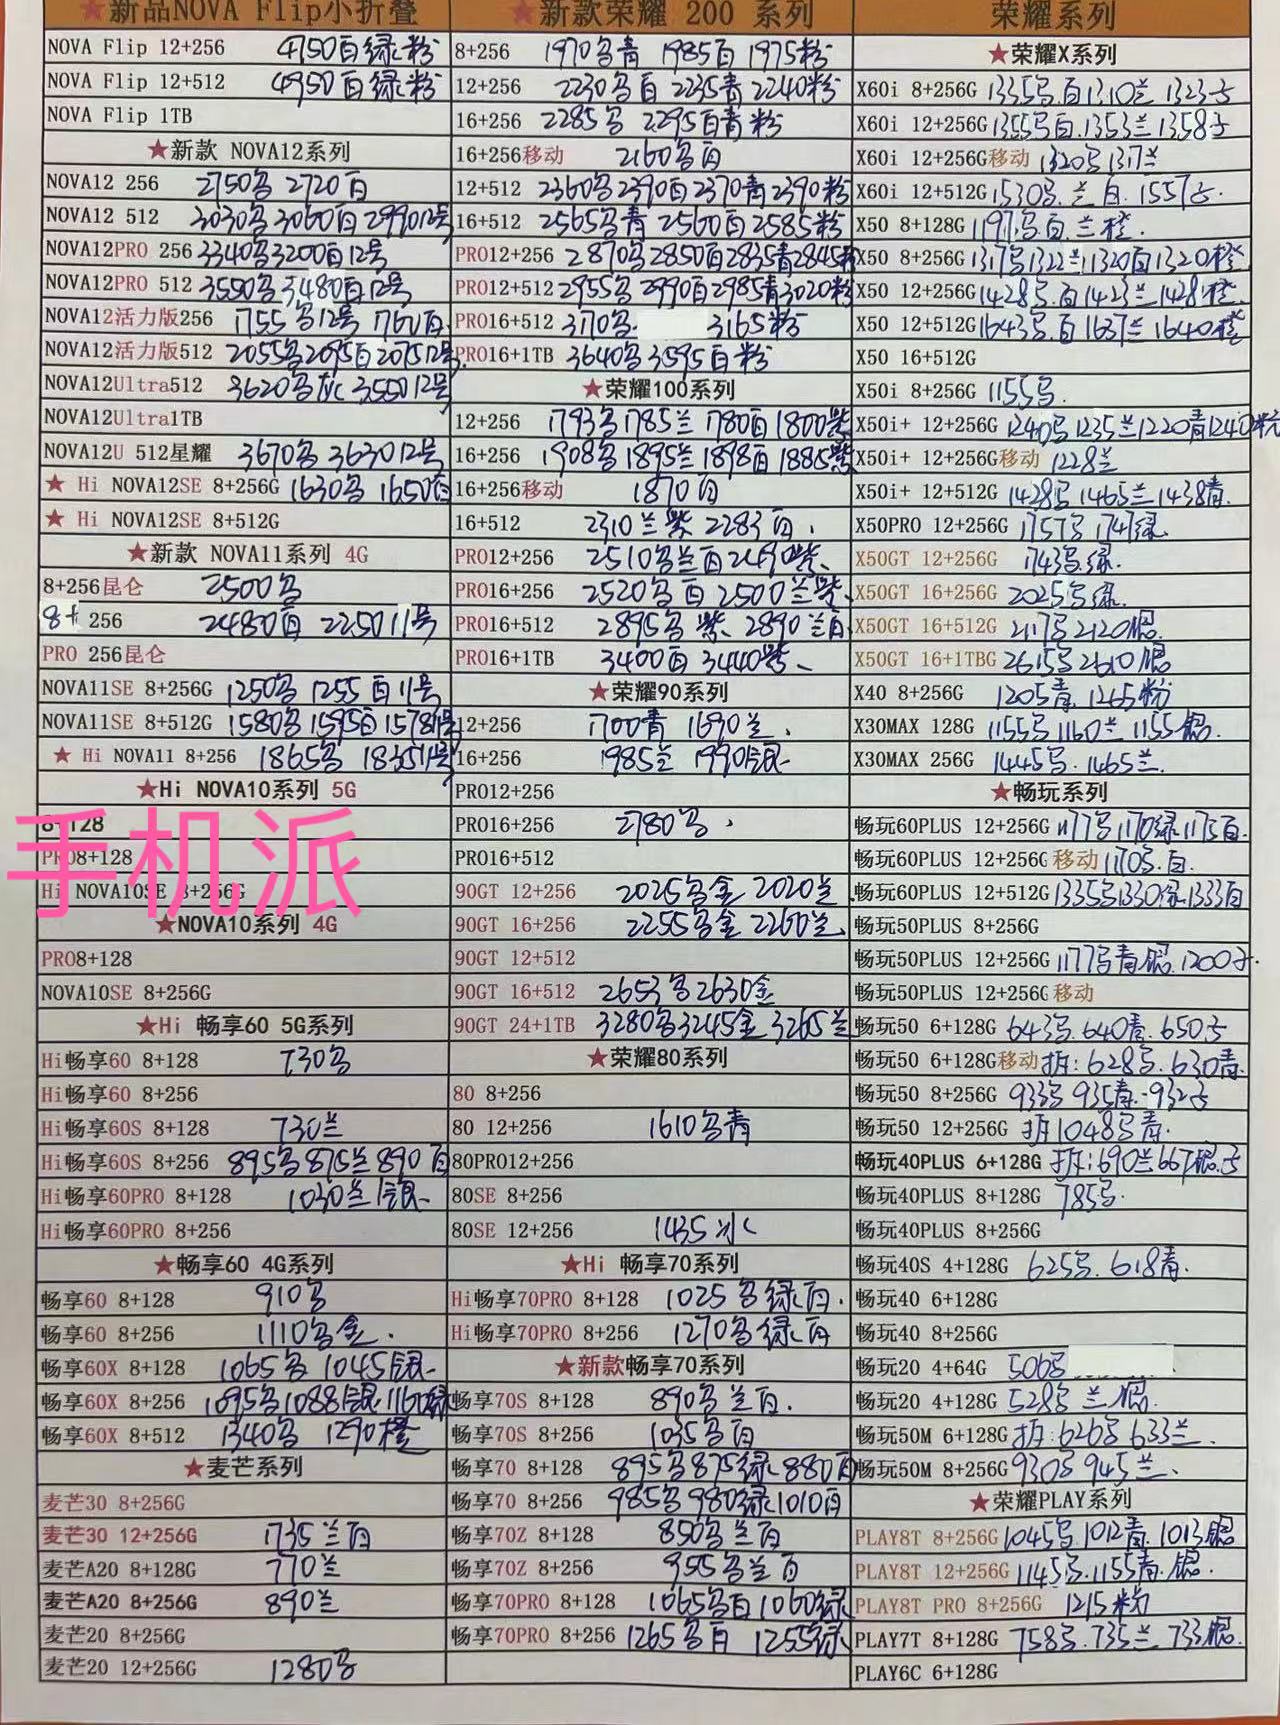 ★新品NOVA Flip小折叠
NOVA Flip 12+256 4750白绿粉
NOVA Flip 12+512 4950白绿粉
NOVA Flip 1TB
★新款 NOVA12系列
NOVA12 256 2750黑 2720白
NOVA12 512 3030黑3060白2990 12号
NOVA12PRO 256 3340黑3200白12号
NOVA12PRO 512 3550黑3480白12号
NOVA12活力版256 1755黑12号 1760白
NOVA12活力版512 2055黑2095白2075 12号
NOVA12Ultra512 3620黑灰 3550 12号
NOVA12Ultra1TB
NOVA12U 512星耀 3670黑 3630 12号
★ Hi NOVA12SE 8+256G 1630黑 1650白
★ Hi NOVA12SE 8+512G
★新款 NOVA11系列 4G
8+256昆仑 2500黑
8+ 256 2480白 2250 11号
PRO 256昆仑
NOVA11SE 8+256G 1250黑 1255白11号
NOVA11SE 8+512G 1580黑1595白1578 11号
★ Hi NOVA11 8+256 1865黑 1835 11号
★Hi NOVA10系列 5G
8+128
PRO8+128
Hi NOVA10SE 8+256G
手机派
★NOVA10系列 4G
PRO8+128
NOVA10SE 8+256G
★Hi 畅享60 5G系列
Hi畅享60 8+128 730黑
Hi畅享60 8+256
Hi畅享60S 8+128 730兰
Hi畅享60S 8+256 895黑875兰890白
Hi畅享60PRO 8+128 1030兰银
Hi畅享60PRO 8+256
★畅享60 4G系列
畅享60 8+128 910黑
畅享60 8+256 1110黑金.
畅享60X 8+128 1065黑 1045银
畅享60X 8+256 1095黑1088银1160绿
畅享60X 8+512 1340黑 1290橙
★麦芒系列
麦芒30 8+256G
麦芒30 12+256G 1735兰白
麦芒A20 8+128G 770兰
麦芒A20 8+256G 890兰
麦芒20 8+256G
麦芒20 12+256G 1280黑
★新款荣耀 200 系列
8+256 1970黑青 1985白 1975粉
12+256 2230黑白2235青2240粉
16+256 2285黑 2295白青粉
16+256移动 2160黑白
12+512 2360黑2390白2370青2390粉
16+512 2565黑青 2560白2585粉
PRO12+256 2870黑2850白2835青2845粉
PRO12+512 2955黑2990白2985青3020粉
PRO16+512 3170黑. 3165粉
PRO16+1TB 3640黑3595白粉
★荣耀100系列
12+256 1793黑1785兰1780白1800紫
16+256 1908黑1895兰1898白1885紫
16+256移动 1870白
16+512 2310兰紫 2283白.
PRO12+256 2510黑兰白2490紫.
PRO16+256 2520黑白2500兰紫.
PRO16+512 2895黑紫. 2890兰白
PRO16+1TB 3400白3440紫.
★荣耀90系列
12+256 1700青 1690兰.
16+256 1985兰 1990银
PRO12+256
PRO16+256 2780黑.
PRO16+512
90GT 12+256 2025黑金 2020兰
90GT 16+256 2255黑金 2260兰
90GT 12+512
90GT 16+512 2653黑2630金
90GT 24+1TB 3280黑3245金 3265兰
★荣耀80系列
80 8+256
80 12+256 1610黑青
80PRO12+256
80SE 8+256
80SE 12+256 1435水
★Hi 畅享70系列
Hi畅享70PRO 8+128 1025黑绿白.
Hi畅享70PRO 8+256 1270黑绿白
★新款畅享70系列
畅享70S 8+128 890黑兰白.
畅享70S 8+256 1035黑白
畅享70 8+128 895黑875绿880白
畅享70 8+256 985黑980绿1010白
畅享70Z 8+128 850黑兰白
畅享70Z 8+256 955黑兰白
畅享70PRO 8+128 1065黑白1060绿
畅享70PRO 8+256 1265黑白 1255绿
荣耀系列
★荣耀X系列
X60i 8+256G 1335黑.白1310兰 1323
X60i 12+256G 1355黑白.1353兰 1358
X60i 12+256G移动 1320黑1317兰
X60i 12+512G 1530黑.兰白.1557
X50 8+128G 1197黑白.兰橙.
X50 8+256G 1317黑1322兰1320白1320橙
X50 12+256G 1428黑.白1423兰1428橙.
X50 12+512G 1643黑.白1637兰1640橙
X50 16+512G
X50i 8+256G 1155黑.
X50i+ 12+256G 1240黑1235兰1220青1240粉
X50i+ 12+256G移动 1228兰
X50i+ 12+512G 1428黑1465兰1438青.
X50PRO 12+256G 1757黑1747绿.
X50GT 12+256G 1743黑.绿.
X50GT 16+256G 2025黑绿.
X50GT 16+512G 2117黑2120银.
X50GT 16+1TBG 2615黑2610银
X40 8+256G 1205青. 1265粉
X30MAX 128G 1155黑1160兰1155银.
X30MAX 256G 1445黑.1465兰.
★畅玩系列
畅玩60PLUS 12+256G 1177黑1170绿1175白.
畅玩60PLUS 12+256G 移动 1170黑.白.
畅玩60PLUS 12+512G 1335黑1330绿1333白
畅玩50PLUS 8+256G
畅玩50PLUS 12+256G 1177黑青银.1200
畅玩50PLUS 12+256G 移动
畅玩50 6+128G 643黑.640青.650
畅玩50 6+128G移动 拆:628黑.630青.
畅玩50 8+256G 933黑 935青.932
畅玩50 12+256G 拆1048黑青.
畅玩40PLUS 6+128G 拆:690兰667银.
畅玩40PLUS 8+128G 785黑.
畅玩40PLUS 8+256G
畅玩40S 4+128G 625黑.618青.
畅玩40 6+128G
畅玩40 8+256G
畅玩20 4+64G 506黑
畅玩20 4+128G 528黑兰银.
畅玩50M 6+128G 拆:626黑 633兰.
畅玩50M 8+256G 930黑945兰.
★荣耀PLAY系列
PLAY8T 8+256G 1045黑1012青.1013银
PLAY8T 12+256G 1145黑.1155青.银.
PLAY8T PRO 8+256G 1215粉
PLAY7T 8+128G 758黑.735兰 733银.
PLAY6C 6+128G